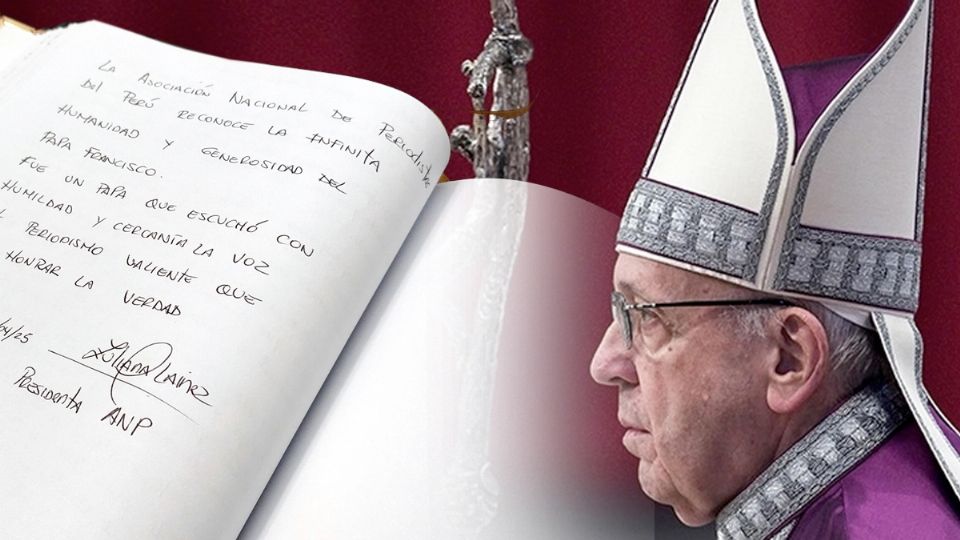 LA ASOCIACIÓN NACIONAL DE PERIODISTAS
DEL PERÚ RECONOCE LA INFINITA
HUMANIDAD Y GENEROSIDAD DEL
PAPA FRANCISCO.
FUE UN PAPA QUE ESCUCHÓ CON
HUMILDAD Y CERCANÍA LA VOZ
PERIODISMO VALIENTE QUE
HONRAR LA VERDAD
/04/25
PRESIDENTA ANP